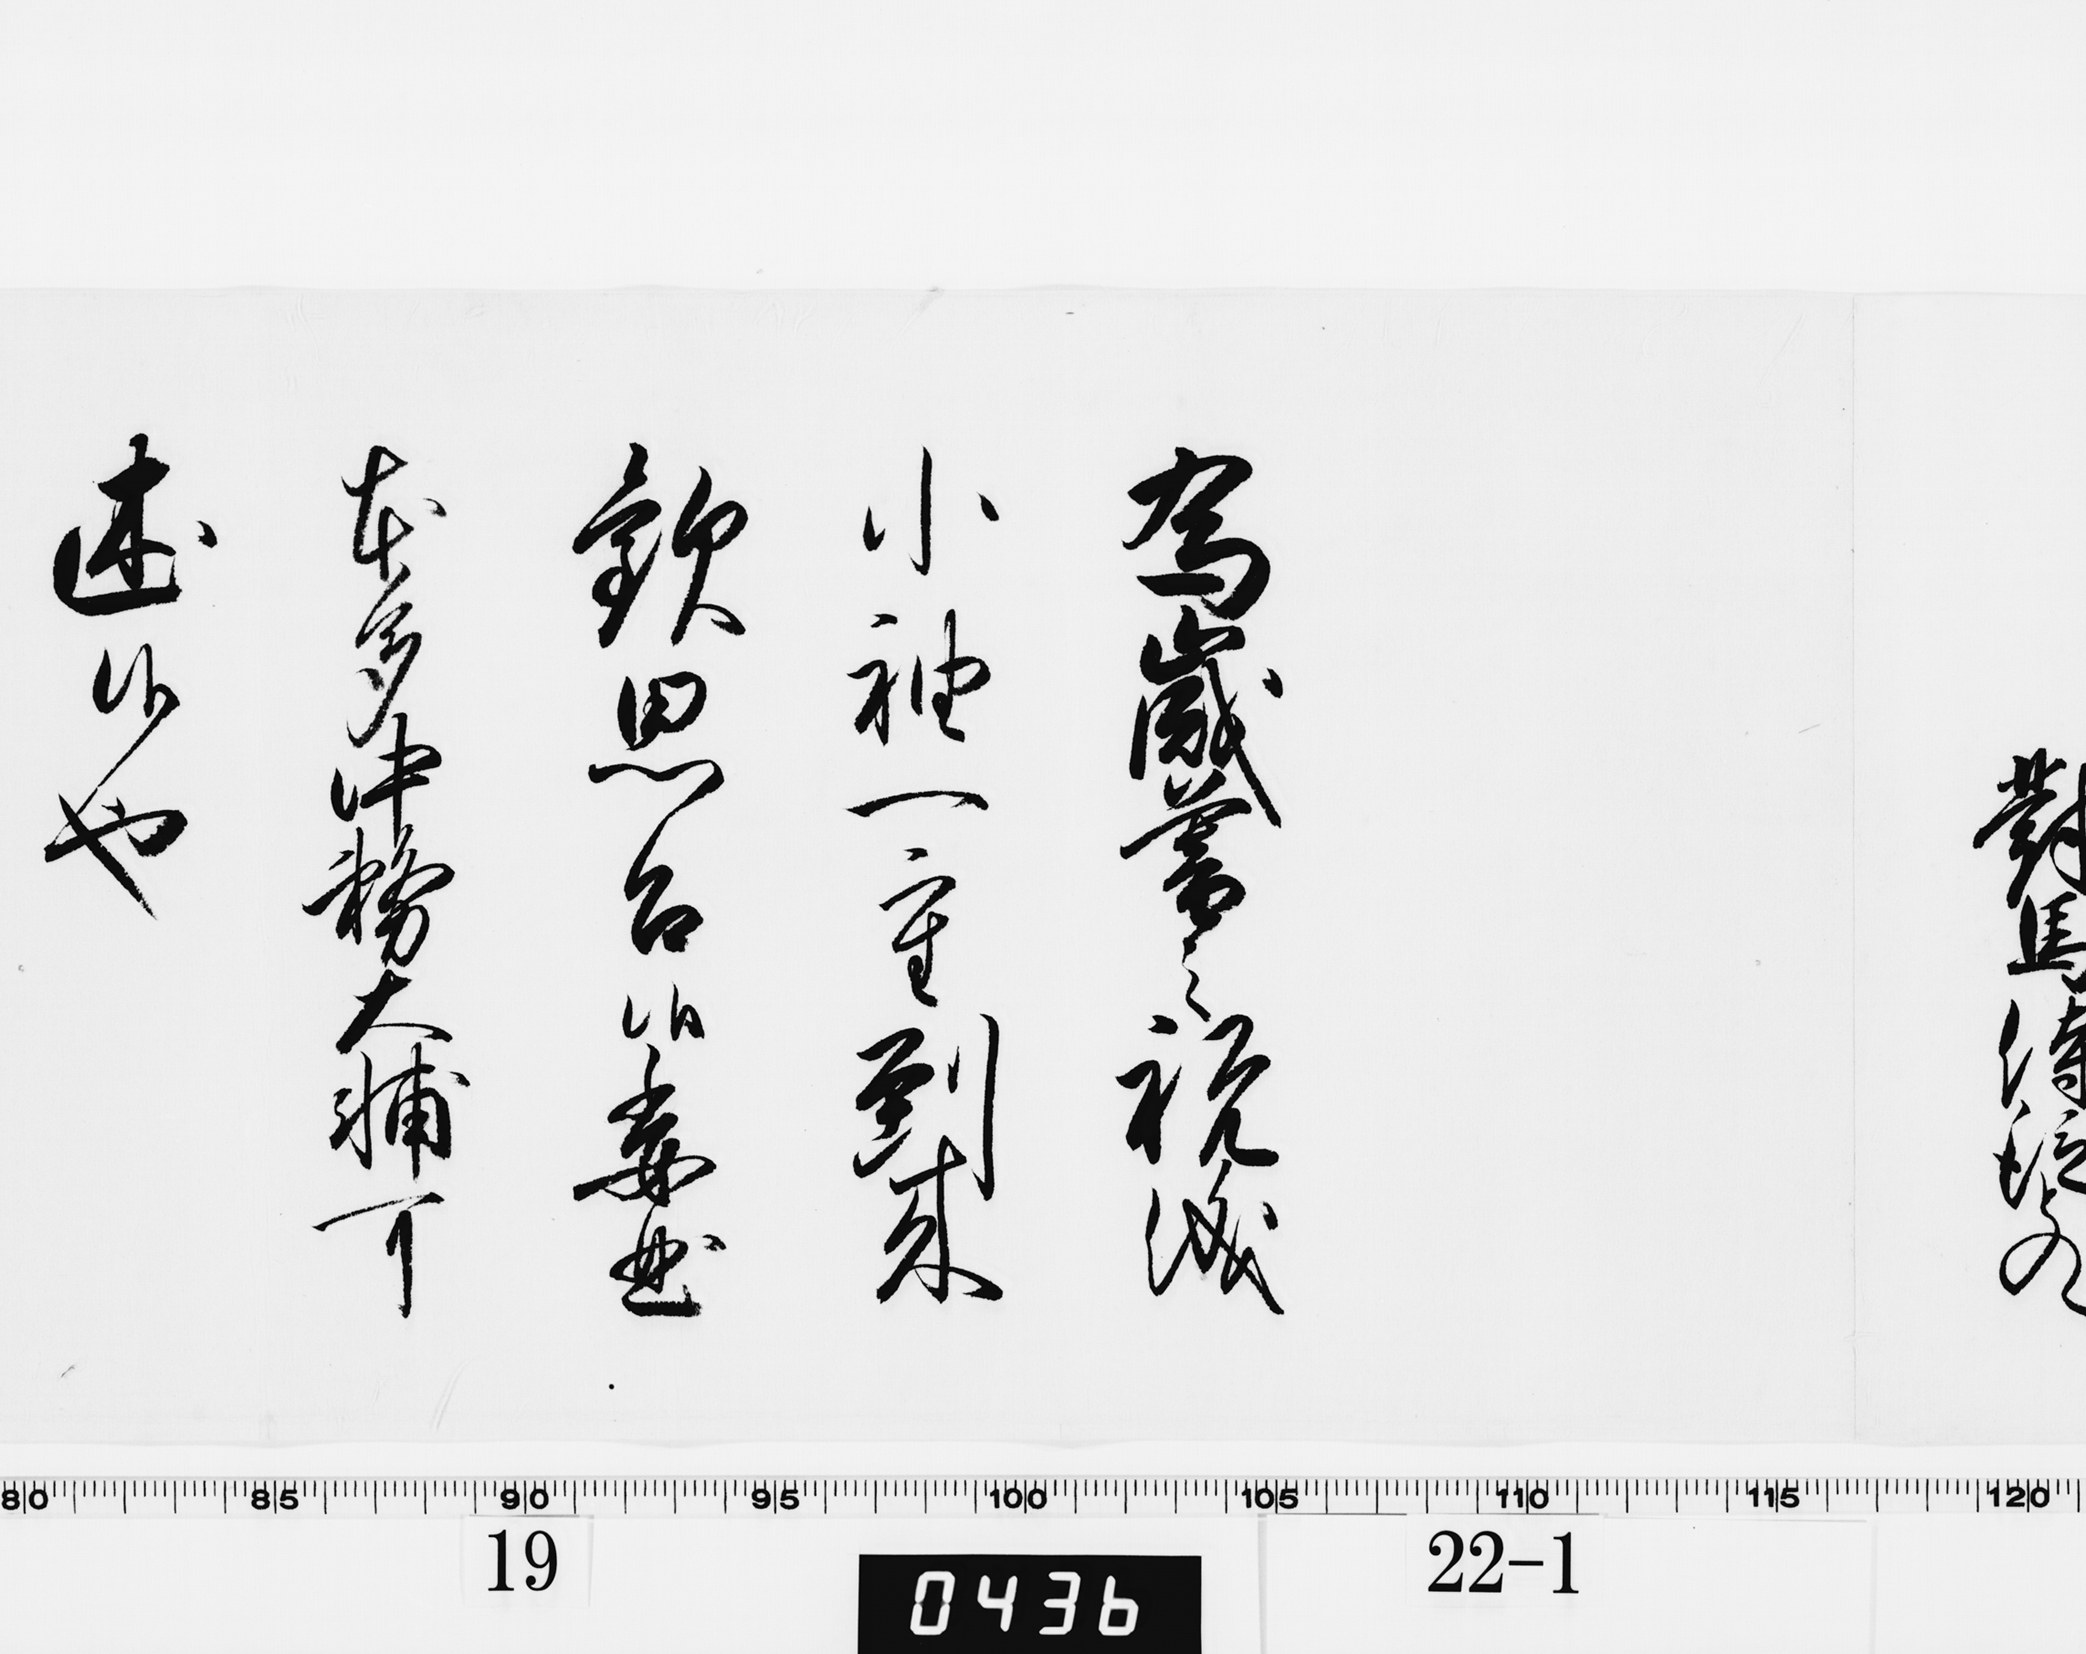 對馬侍従
為歳暮之祝儀
小袖一重到来
歓思召候委曲
本多中務大輔可
述候也
80 85 90 95 100 105 110 115 120
19
0436
22-1